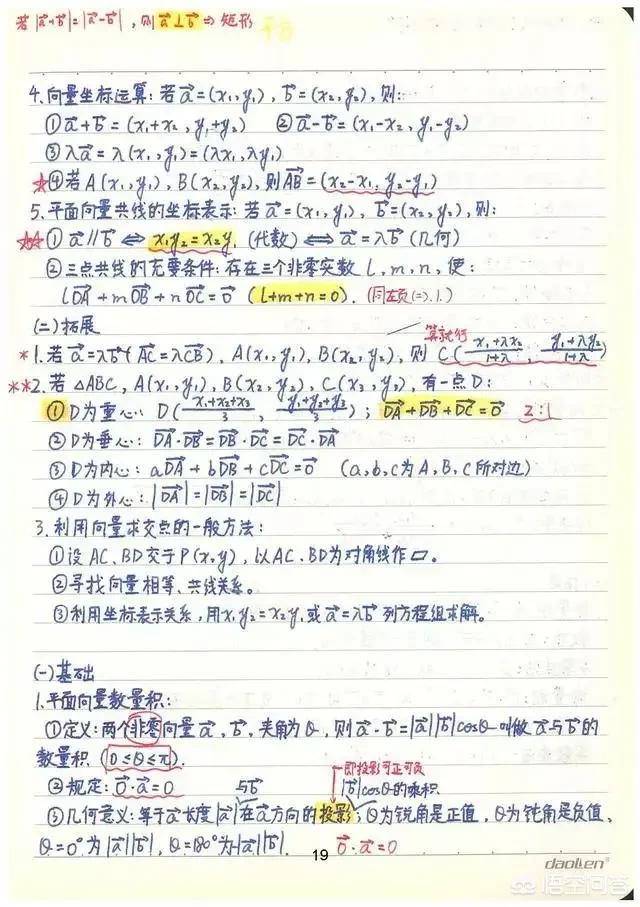 若|a⃗+b⃗|=|a⃗-b⃗|,则a⃗⊥b⃗⇒矩形
4.向量坐标运算:若a⃗=(x₁,y₁),b⃗=(x₂,y₂),则:
①a⃗+b⃗=(x₁+x₂,y₁+y₂) ②a⃗-b⃗=(x₁-x₂,y₁-y₂)
③λa⃗=λ(x₁,y₁)=(λx₁,λy₁)
☆④若A(x₁,y₁),B(x₂,y₂),则AB⃗=(x₂-x₁,y₂-y₁)
5.平面向量共线的坐标表示:若a⃗=(x₁,y₁),b⃗=(x₂,y₂),则:
☆☆①a⃗∥b⃗⇔x₁y₂=x₂y₁(代数)⇔a⃗=λb⃗(几何)
②三点共线的充要条件:存在三个非零实数l,m,n,使:
lOA⃗+mOB⃗+nOC⃗=0⃗(l+m+n=0).(同左页(=).1.)
(二)拓展
算就行
*1.若a⃗=λb⃗(AC⃗=λCB⃗),A(x₁,y₁),B(x₂,y₂),则C((x₁+λx₂)/(1+λ),(y₁+λy₂)/(1+λ))
**2.若△ABC,A(x₁,y₁),B(x₂,y₂),C(x₃,y₃),有一点D:
①D为重心:D((x₁+x₂+x₃)/3,(y₁+y₂+y₃)/3);DA⃗+DB⃗+DC⃗=0⃗ 2:1
②D为垂心:DA⃗·DB⃗=DB⃗·DC⃗=DC⃗·DA⃗
③D为内心:aDA⃗+bDB⃗+cDC⃗=0⃗ (a,b,c为A,B,C所对边)
④D为外心:|DA⃗|=|DB⃗|=|DC⃗|
3.利用向量求交点的一般方法:
①设AC、BD交于P(x,y),以AC、BD为对角线作▱。
②寻找向量相等、共线关系。
③利用坐标表示关系,用x₁y₂=x₂y₁或a⃗=λb⃗列方程组求解。
(一)基础
1.平面向量数量积:
①定义:两个非零向量a⃗,b⃗,夹角为θ,则a⃗·b⃗=|a⃗||b⃗|cosθ叫做a⃗与b⃗的
数量积(0≤θ≤π).
即投影可正可负
②规定:0⃗·a⃗=0 与b⃗ |b⃗|cosθ的乘积
③几何意义:等于a⃗长度|a⃗|在a⃗方向的投影;θ为锐角是正值,θ为钝角是负值、
θ=0°为|a⃗||b⃗|,θ=180°为-|a⃗||b⃗|. 0⃗·a⃗=0
19
daolien
悟空问答